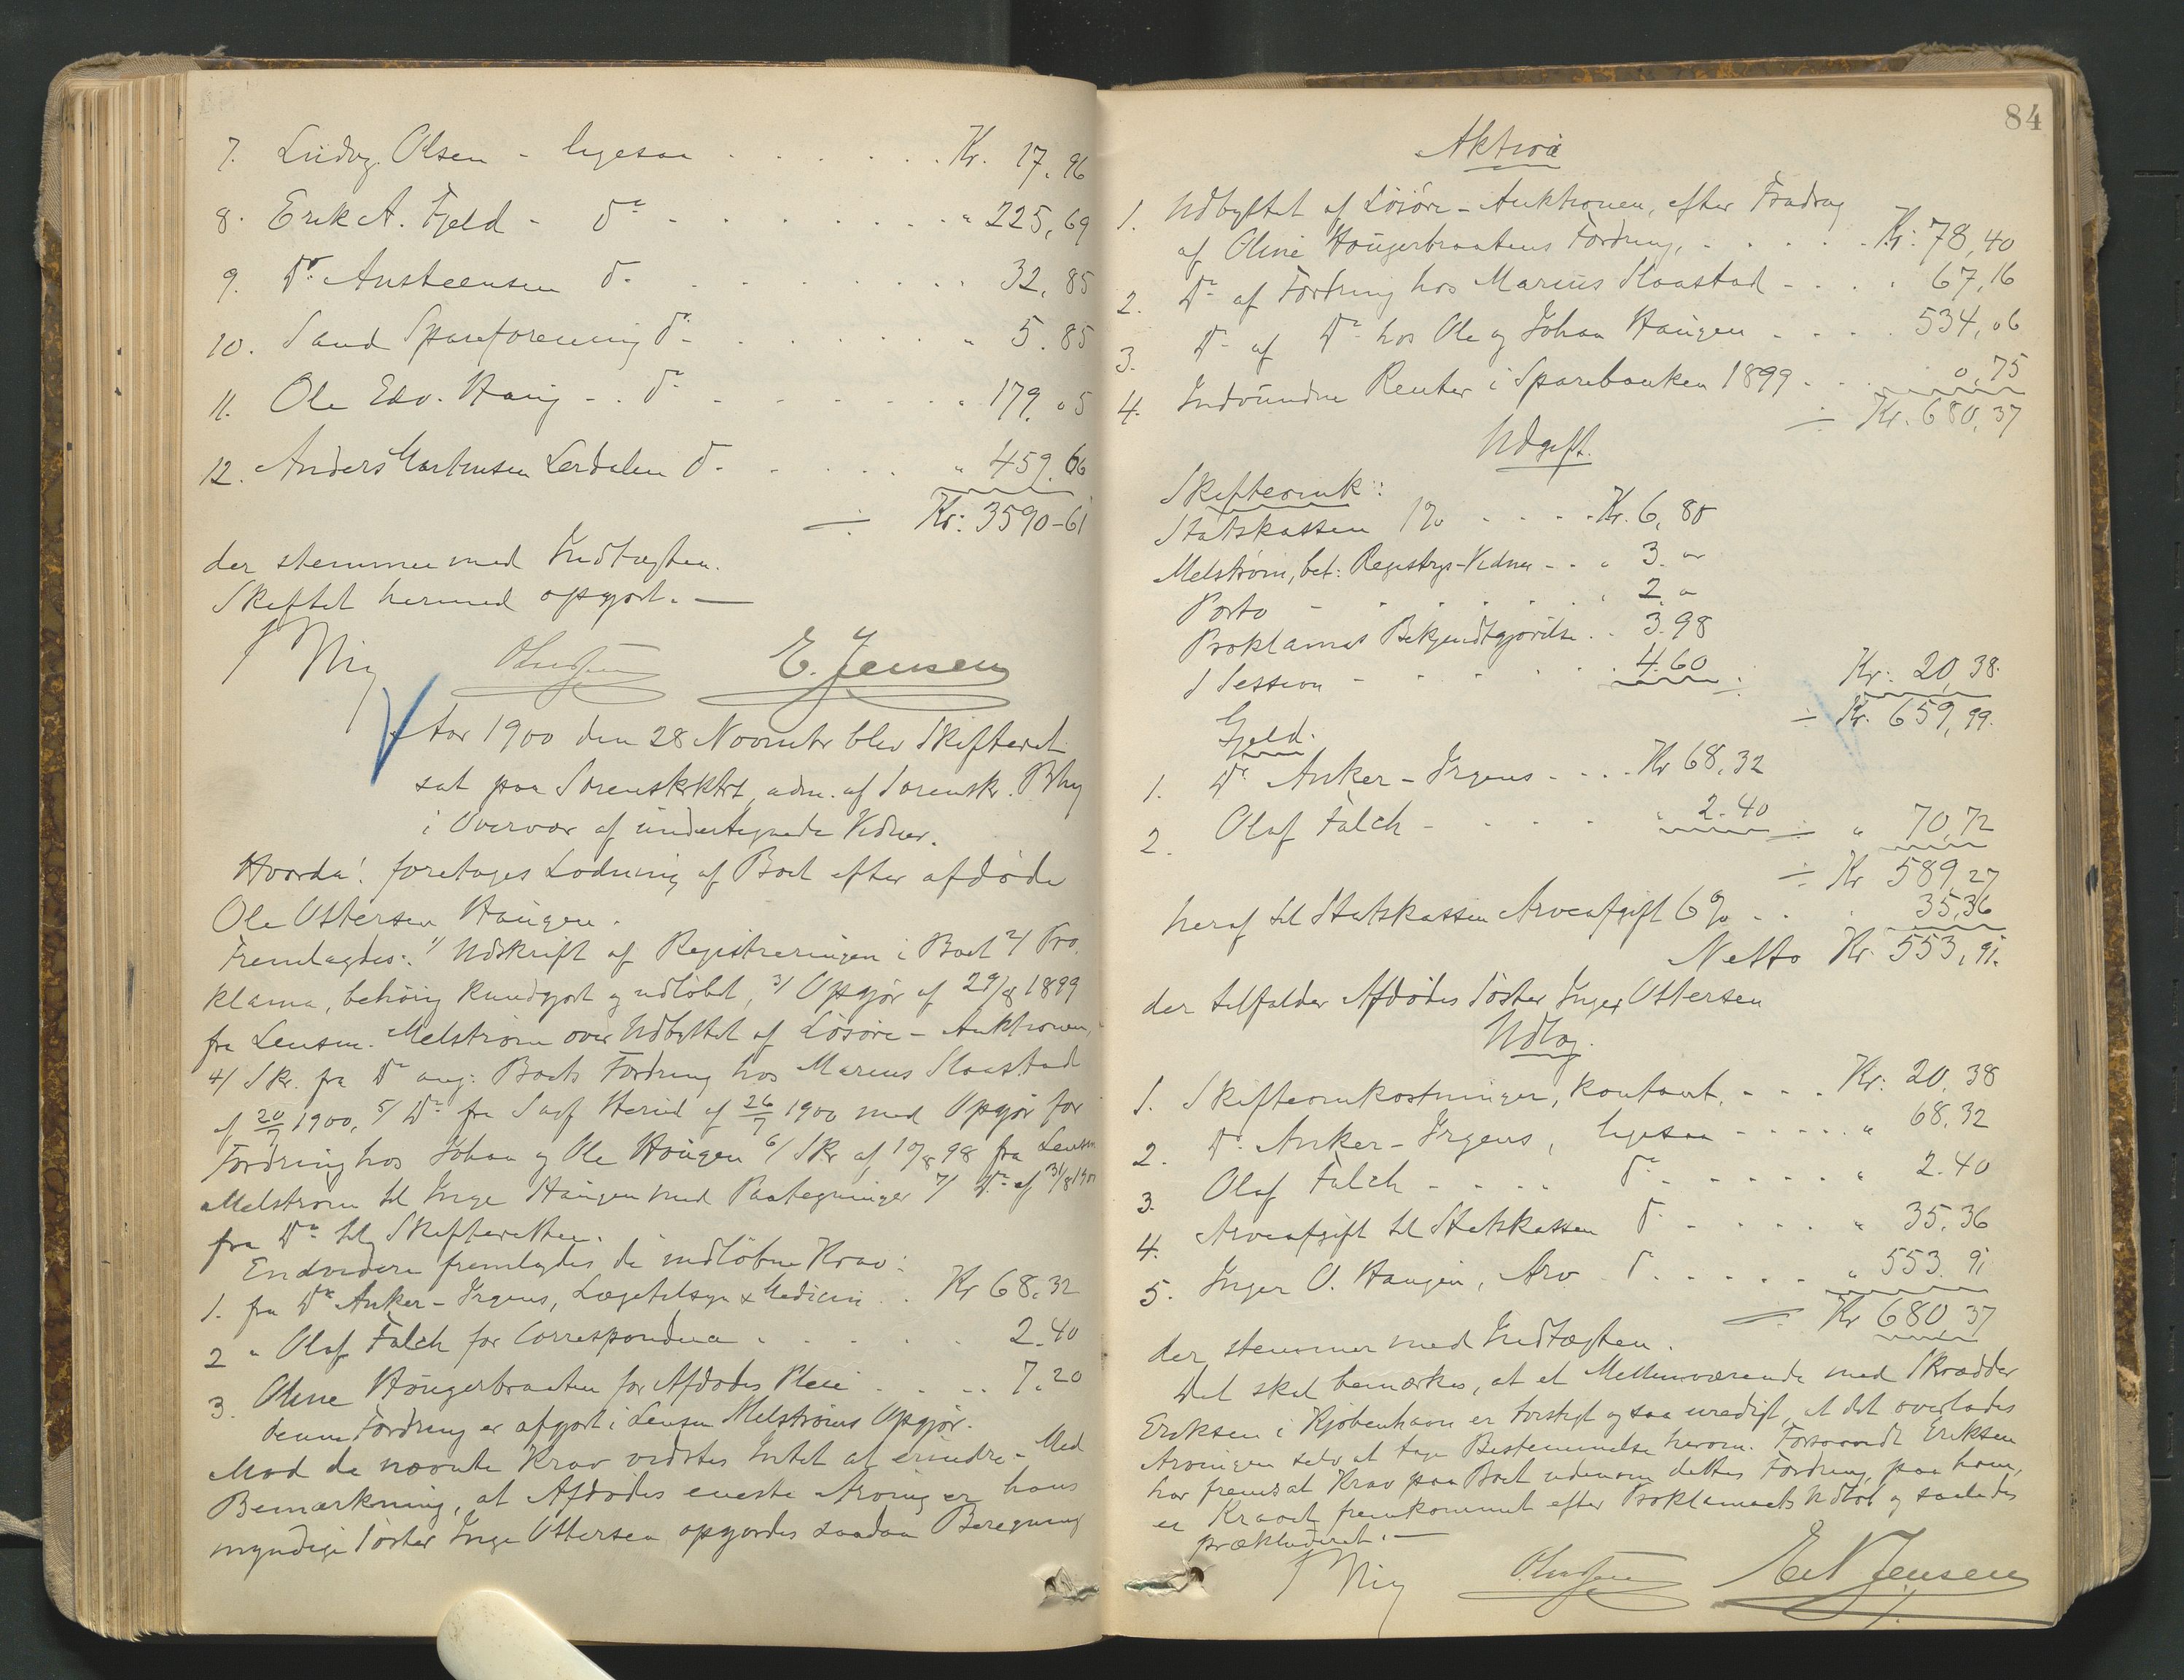 7. Ludvig Olsen - ligesaa . . . . . . . Kr. 17.96
8. Erik A. Fjeld - do - . . . . . . " 225,69
9. Dr. Austeensen do . . . . . . . . 32,85
10. Sand Spareforening do - . . . . . " 5.85
11. Ole Edv. Haug - . . do - . . . . . " 179.05
12. Anders Martinsen Lerdalen do . . . . " 459.66
÷ Kr: 3590-61
der stemmer med Indtægten.
Skiftet hermed opgjort. —
E. Jensen
Aar 1900 den 28 Novembr blev Skifteret
sat paa Sorenskrktrt, adm. af Sorenskr.
i Overvær af undertegnede Vidner.
Hvorda! foretages Lodning af Boet efter afdøde
Ole Ottersen Haugen.
Fremlagdes: 1/ Udskrift af Registreringen i Boet 2/ Pro
klama, behørig kundgjort og udløbet, 3/ Opgjør af 29/8 1899
fra Lensm. Melstrøm over Udbyttet af Løsøre-Auktionen,
4/ Skr. fra Do ang: Boets Fordring hos Marius Slaastad
af 20/7 1900, 5/ Do fra Sagf. af 26/7 1900 med Opgjør for
Fordring hos Johan og Ole Haugen 6/ Skr af 10/8 98 fra Lensm
Melstrøm til Inge Haugen med Paategninger 7/ Do af 31/8 1900
fra Do til Skifteretten.
Endvidere fremlagdes de indløbne Krav:
1. fra Dr Anker-Irgens, Lægetilsyn & Medicin . . Kr 68,32
2 " Olaf Falch for Correspondence . . . . . . 2.40
3. Oline Haugerbraaten for Afdødes Pleie . . . . . 7.20
denne Fordring er afgjort i Lensm Melstrøms Opgjør.
Mod de nævnte Krav vidstes Intet at erindre - Med
Bemærkning, at Afdødes eneste Arving er hans
myndige Søster Inge Ottersen opgjordes saadan Beregning
84
Aktiva
1. Udbyttet af Løsøre-Auktionen, efter Fradrag
af Oline Haugerbraatens Fordring, . . . . . . Kr: 78,40
2. Do af Fordring hos Marius Slaastad - . . . 67,16
3. Do af Do hos Ole og Johan Haugen - . . . 534,06
4. Indvundne Renter i Sparebanken 1899 . . . . 0,75
÷ Kr. 680,37
Udgift.
Skifteomk:
Statskassen 1% . . . . Kr. 6,80
Melstrøm, bet: Registrgs-Vidner - . . " 3. "
Porto - . . . . . . " 2. "
Proklamas Bekjendtgjørelse . . 3.98
1 Session - . . . . . 4.60 ÷ Kr: 20,38.
÷ Kr. 659,99.
Gjeld.
1. Dr Anker-Irgens - . . . Kr 68,32
2. Olaf Falch - . . . . " 2.40 ÷ " 70,72
÷ Kr 589,27
heraf til Statskassen Arveafgift 6% . . . 35,36
Netto Kr. 553,91.
der tilfalder Afdødes Søster Inger Ottersen
Udlæg.
1. Skifteomkostninger, kontant, - - . Kr: 20,38
2. Dr. Anker-Irgens, ligesaa - . . . . " 68,32
3. Olaf Falch - . . . . do - . . . . . " 2.40
4. Arveafgift til Statskassen do - . . . . " 35,36
5. Inger O. Haugen, Arv do . . . . . " 553.91
÷ Kr 680,37
der stemmer med Indtægten.
Det skal bemærkes, at et Mellemværende med Skrædder
Eriksen i Kjøbenhavn er tvistigt og saa uredigt, at det overlades
Arvingen selv at tage Bestemmelse herom. Forsaavidt Eriksen
har fremsat Krav paa Boet udenom dettes Fordring paa ham,
er Kravet fremkommet efter Proklamaets Udløb og saaledes
prækluderet. —
Jensen